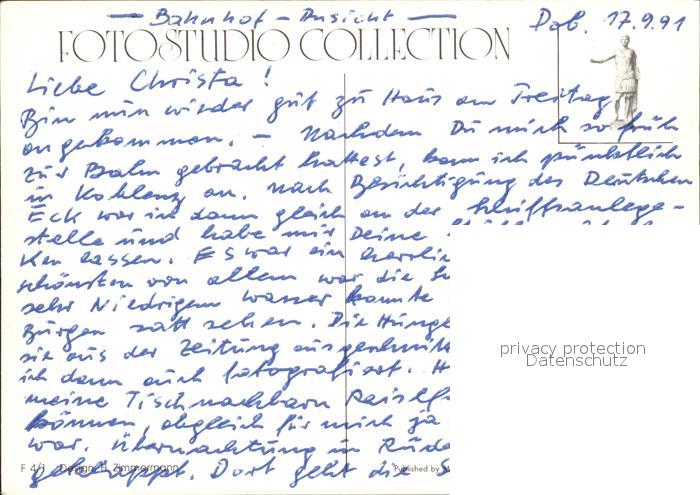 — Bahnhof - Ansicht — Dob. 17.9.91
FOTOSTUDIO COLLECTION
Liebe Christa!
Bin nun wieder gut zu Haus am Freitag
angekommen. — Nachdem Du mich so früh
zur Bahn gebracht hattest, kam ich pünktlich
in Koblenz an. Nach Besichtigung des Deutschen
Eck war ich dann gleich an der Schiffsanlege-
stelle und habe mir Deine
ken lassen. Es war ein herrlic
schönsten von allem war die
sehr Niedrigem Wasser konnte
Burgen satt sehen. Die
sie aus der Zeitung ausgeschnitt
ich dann auch fotografiert. H
meine Tischnachbarn
können, obgleich für mich ja
war. Übernachtung in Rüde
geklappt. Dort geht die S
privacy protection
Datenschutz
F 4/1 Design: H. Zimmermann
Published by